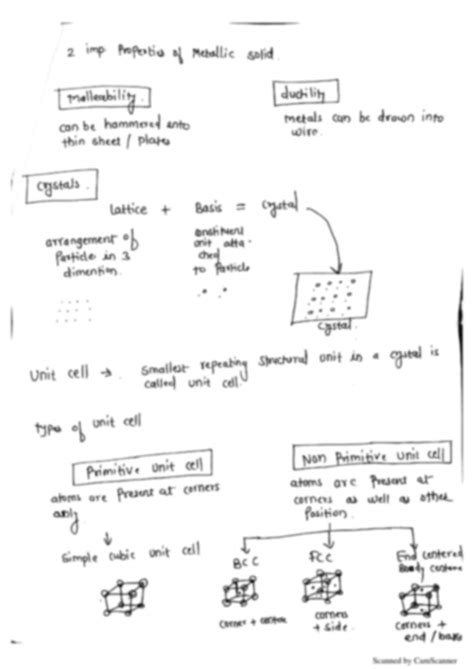 2 imp Properties of Metallic solid.
malleability.
ductility
can be hammered into
thin sheet / plates
metals can be drawn into
wire.
Crystals.
lattice + Basis = Crystal
arrangement of
Particle in 3
dimention.
constituent
unit atta-
ched
to Particle
Crystal.
Unit cell → . Smallest repeating structural unit in a crystal is
called unit cell.
types of unit cell
Primitive unit cell
Non Primitive unit cell
atoms are present at corners
only.
atoms are present at
corners as well as other
Position.
Simple cubic unit cell
BCC
FCC
End centered
corner + centre
corners
+ side.
corners +
end / base
Scanned by CamScanner